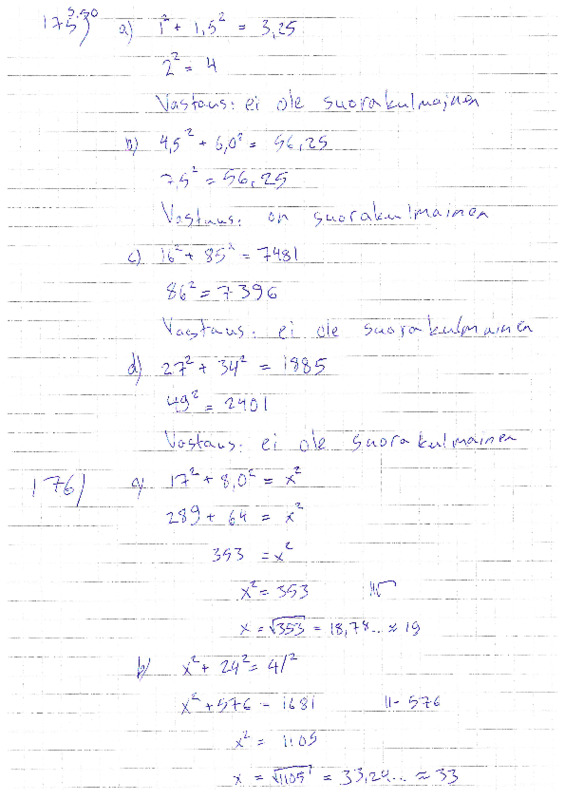 175) a) 1² + 1,5² = 3,25
2² = 4
Vastaus: ei ole suorakulmainen
b) 4,5² + 6,0² = 56,25
7,5² = 56,25
Vastaus: on suorakulmainen
c) 16² + 85² = 7481
86² = 7396
Vastaus: ei ole suorakulmainen
d) 27² + 34² = 1885
49² = 2401
Vastaus: ei ole suorakulmainen
176) a) 17² + 8,0² = x²
289 + 64 = x²
353 = x²
x² = 353 ||√
x = √353 = 18,78... ≈ 19
b) x² + 24² = 41²
x² + 576 = 1681 ||- 576
x² = 1105
x = √1105 = 33,24... ≈ 33